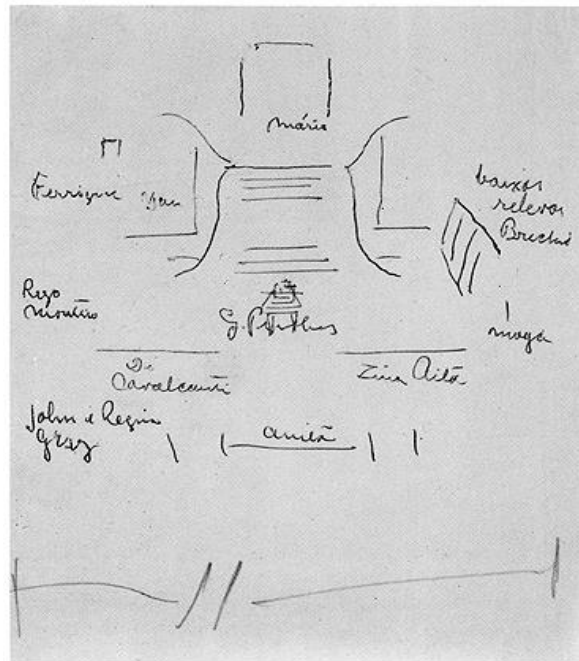 mário
Ferrigni
Yan
baixos
relevos
Brecheret
Rego
Monteiro
maya
Di
Cavalcanti
Zina Aita
John e Regina
Graz
anita